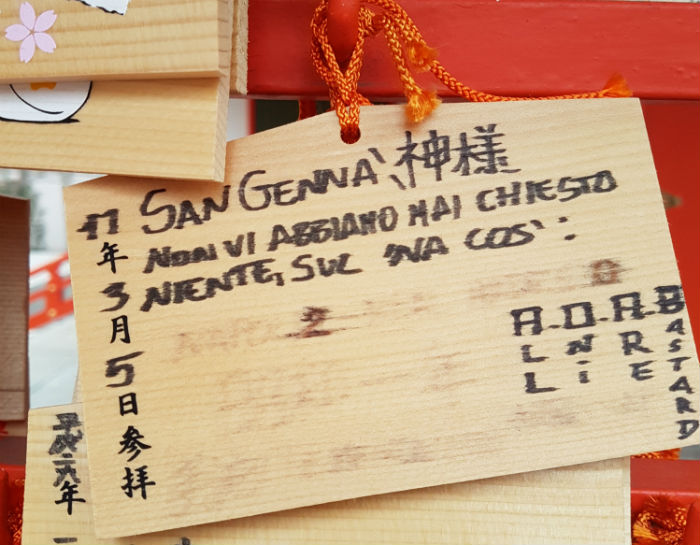 SAN GENNA' 神様
NON VI ABBIAMO MAI CHIESTO
NIENTE, SUL 'NA COS':
A.O.A.B
ALL
ONI
ARE
BASTARD
17年3月5日参拝
平成二九年